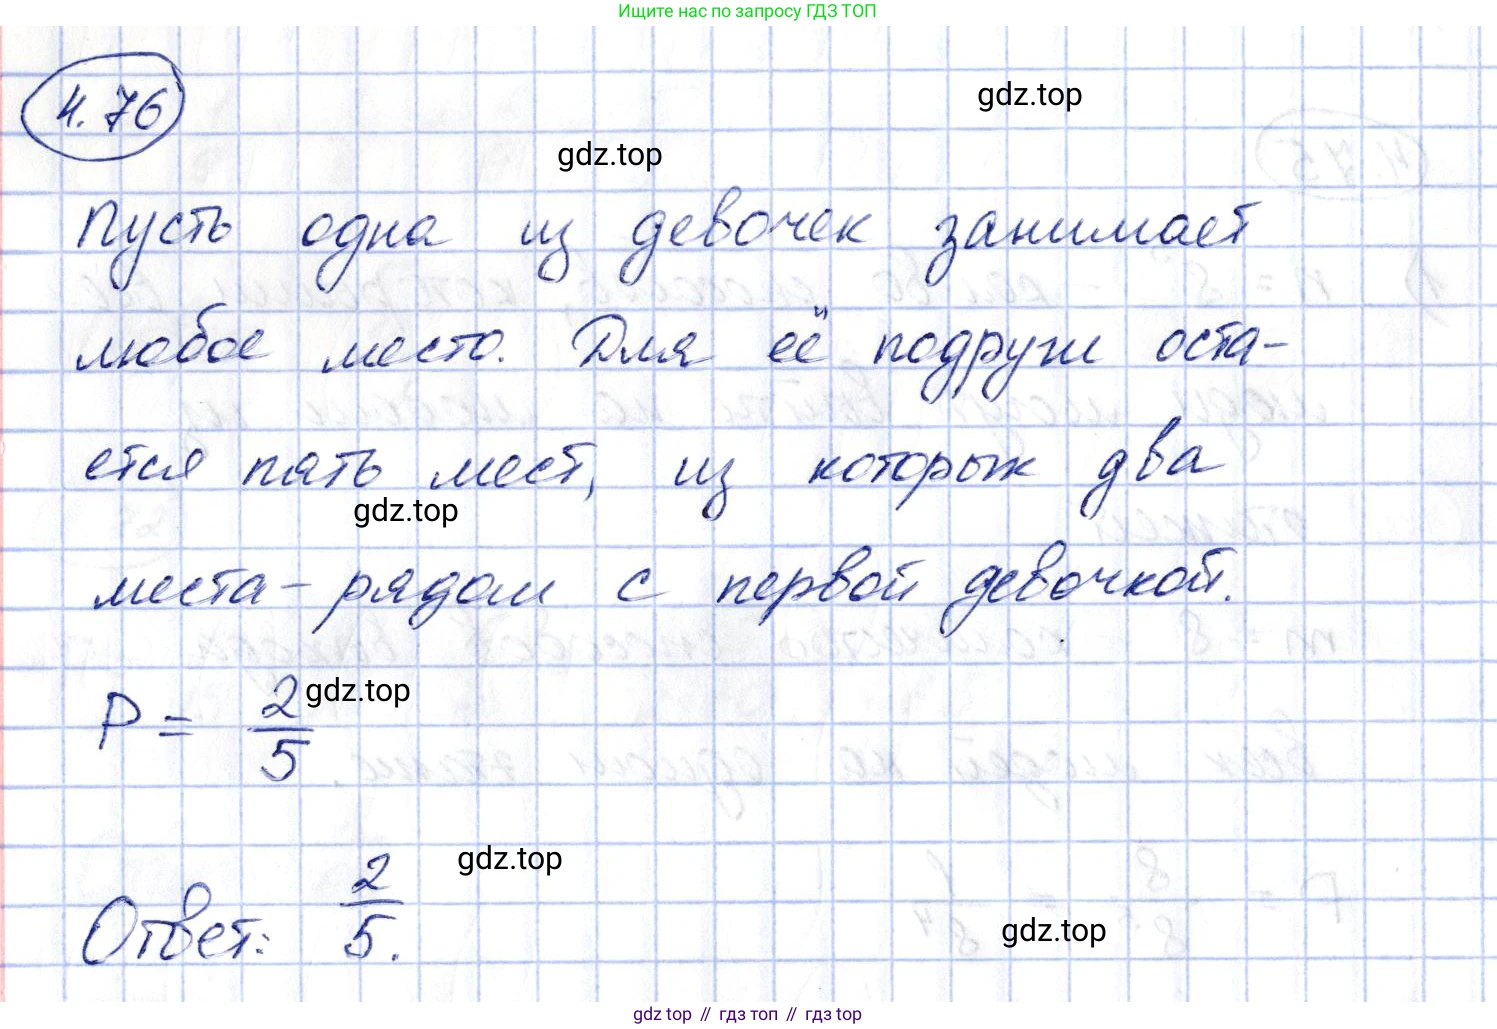 Ищите нас по запросу ГДЗ ТОП
4.76
gdz.top
gdz.top
Пусть одна из девочек занимает
любое место. Для её подруги оста-
ется пять мест, из которых два
gdz.top
места – рядом с первой девочкой.
P = 2/5
gdz.top
gdz.top
Ответ: 2/5.
gdz.top
gdz top // гдз топ // гдз top